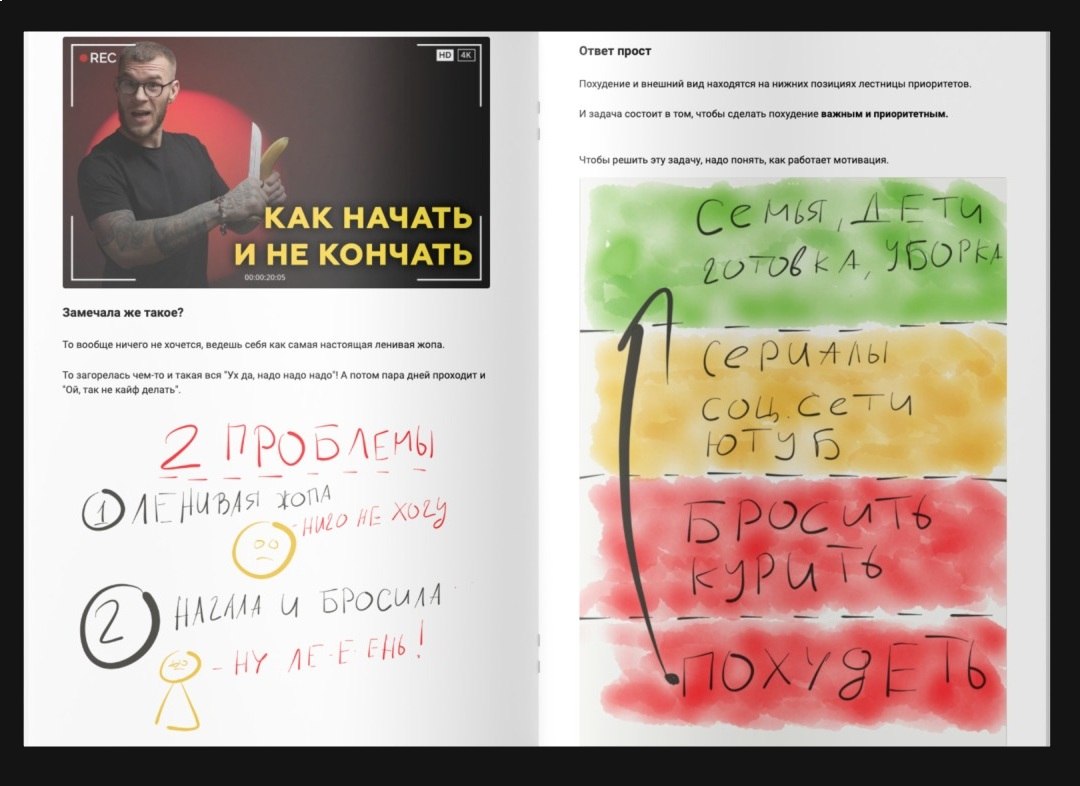 REC
HD 4K
КАК НАЧАТЬ
И НЕ КОНЧАТЬ
00:00:20:05
Замечала же такое?
То вообще ничего не хочется, ведешь себя как самая настоящая ленивая жопа.
То загорелась чем-то и такая вся "Ух да, надо надо надо"! А потом пара дней проходит и
"Ой, так не кайф делать".
2 ПРОБЛЕМЫ
1 ЛЕНИВАЯ ЖОПА
- НИЧО НЕ ХОЧУ
2 НАЧАЛА И БРОСИЛА
- НУ ЛЕ-Е-ЕНЬ!
Ответ прост
Похудение и внешний вид находятся на нижних позициях лестницы приоритетов.
И задача состоит в том, чтобы сделать похудение важным и приоритетным.
Чтобы решить эту задачу, надо понять, как работает мотивация.
СЕМЬЯ, ДЕТИ
ГОТОВКА, УБОРКА
СЕРИАЛЫ
СОЦ. СЕТИ
ЮТУБ
БРОСИТЬ
КУРИТЬ
ПОХУДЕТЬ